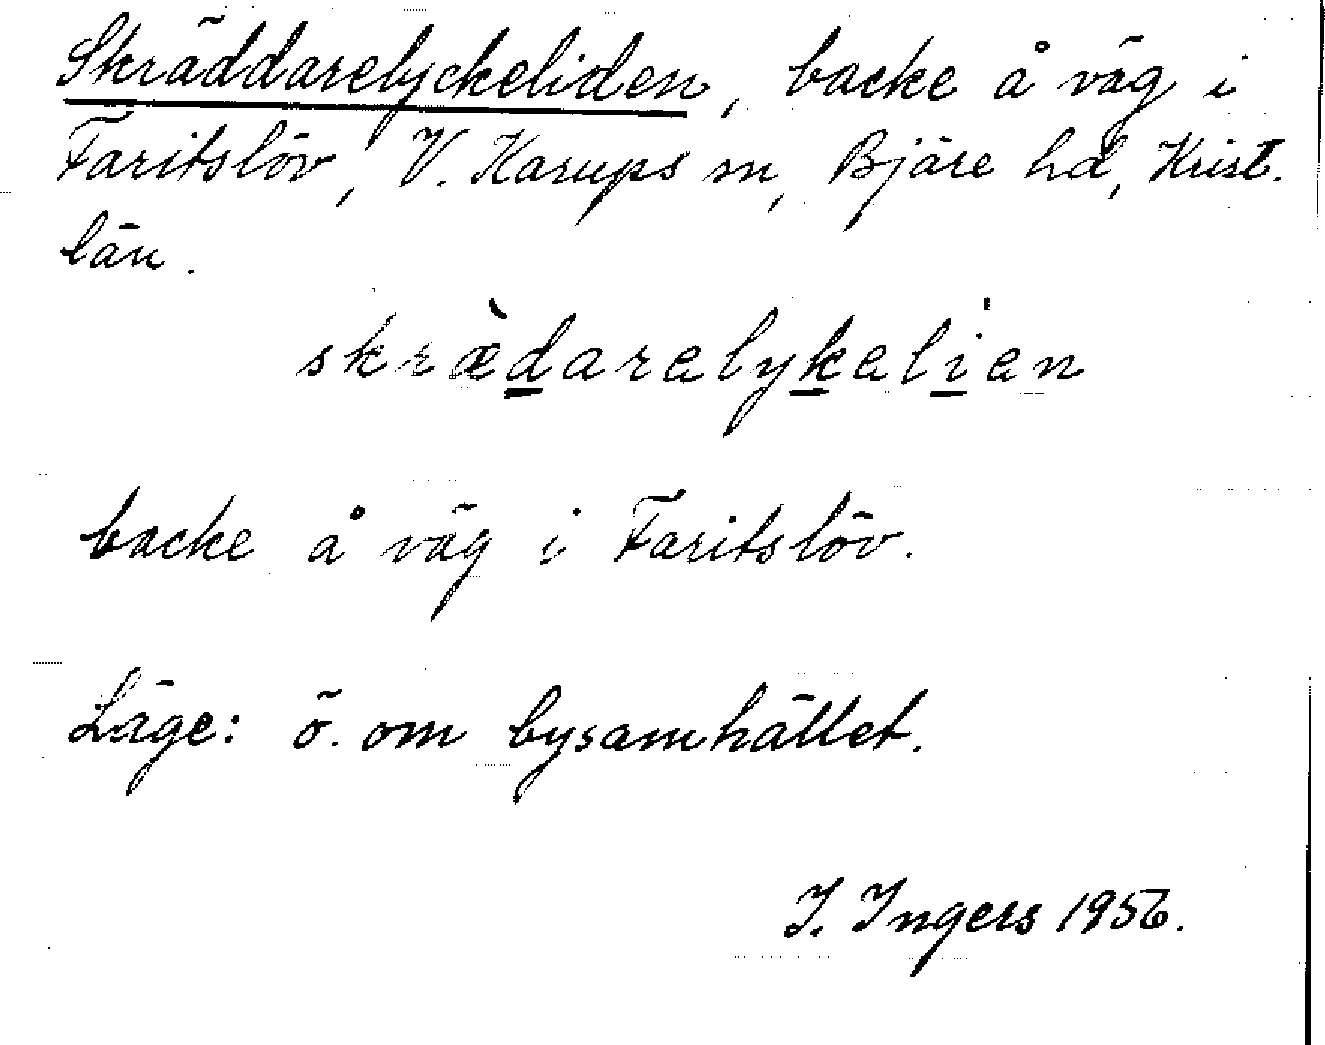 Skräddarelyckeliden, backe å väg i
Faritslöv, V. Karups sn, Bjäre hd, Krist.
län.
skræ̀d̲arelyk̲elí̲en
backe å väg i Faritslöv.
Läge: ö. om bysamhället.
I. Ingers 1956.